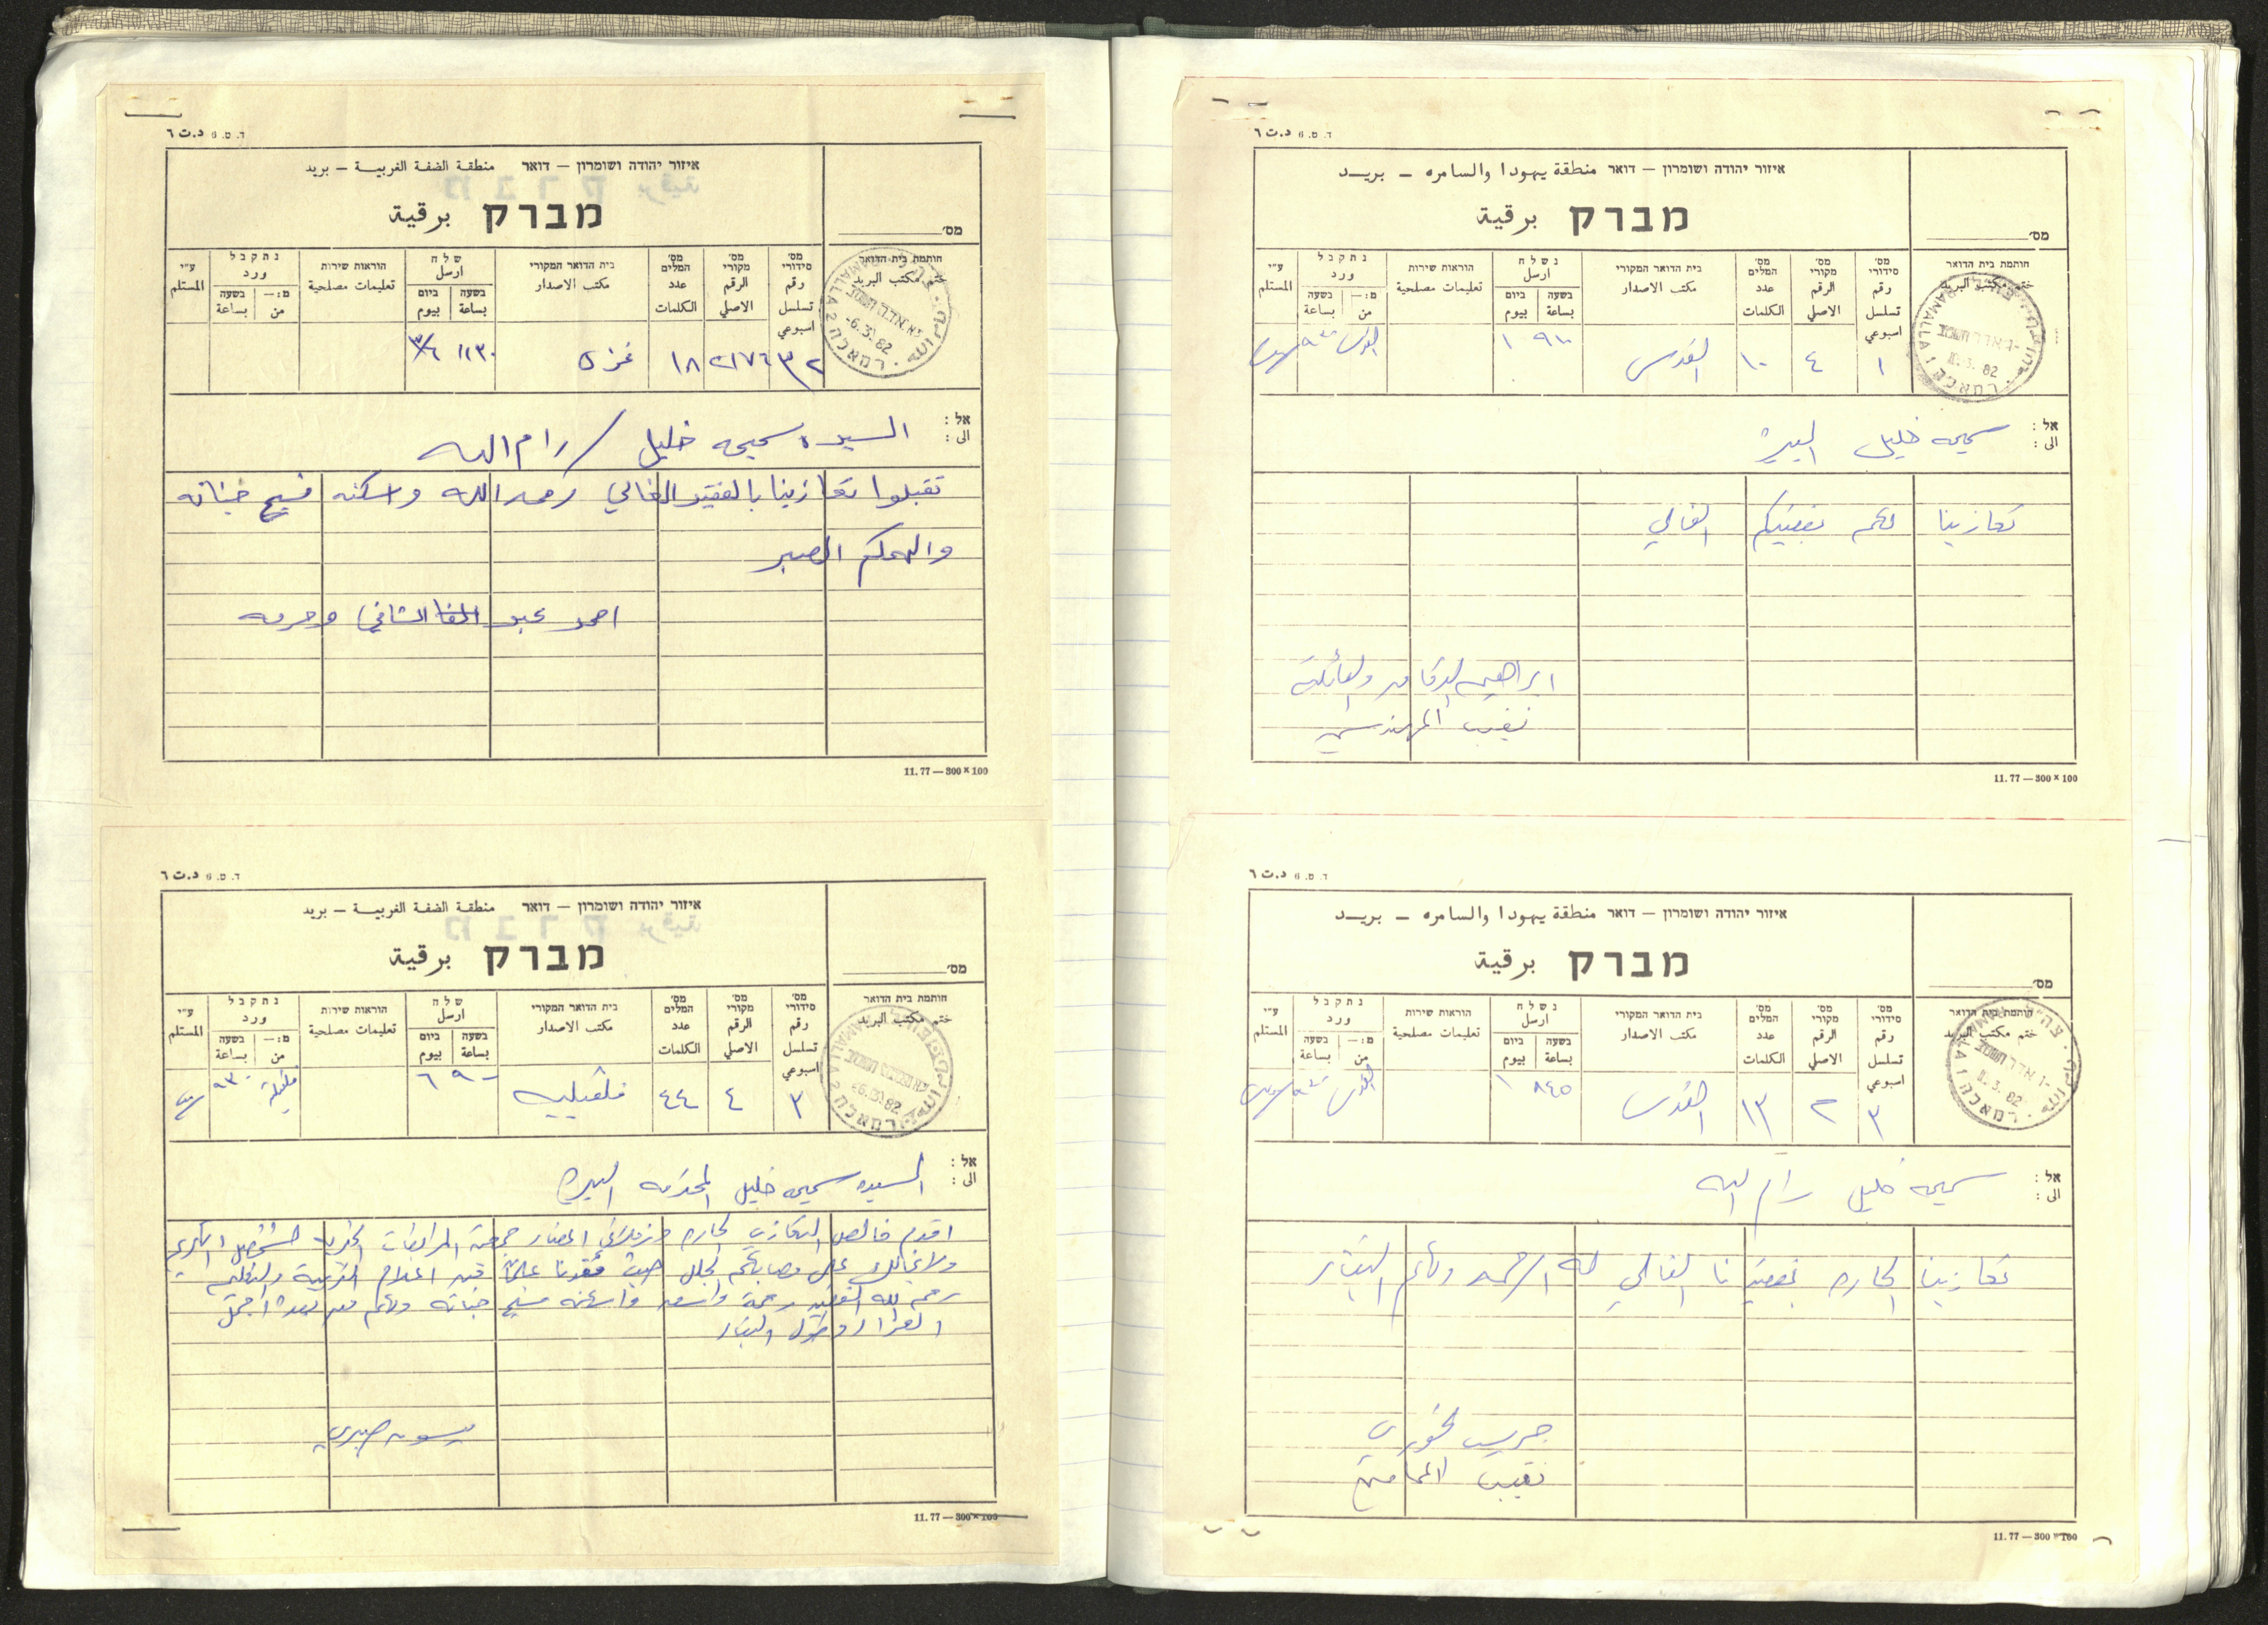 ד. ס. 6 د.ت ٦
איזור יהודה ושומרון — דואר منطقة الضفة الغربية — بريد
מברק برقية
מס׳
חותמת בית הדואר
ختم مكتب البريد
מס׳ סידורי رقم تسلسل اسبوعي
מס׳ מקורי الرقم الاصلي
מס׳ המלים عدد الكلمات
בית הדואר המקורי مكتب الاصدار
שלח ارسل
בשעה بساعة ביום بيوم
הוראות שירות تعليمات مصلحية
נתקבל ورد
מ:— من בשעה بساعة
ע״י المستلم
-6.3.82
RAMALLA 2
٣٢ ٢١٧٦ ١٨ غزة ١١٣٠ ٣/٦
אל :
الى : السيدة سميحه خليل / رام الله
تقبلوا تعازينا بالفقيد الغالي رحمه الله واسكنه فسيح جناته
والهمكم الصبر
احمد عبد الشافي وحرمه
11.77 — 300 × 100
ד. ס. 6 د.ت ٦
איזור יהודה ושומרון — דואר منطقة الضفة الغربية — بريد
מברק برقية
מס׳
חותמת בית הדואר
ختم مكتب البريد
מס׳ סידורי رقم تسلسل اسبوعي
מס׳ מקורי الرقم الاصلي
מס׳ המלים عدد الكلمات
בית הדואר המקורי مكتب الاصدار
שלח ارسل
בשעה بساعة ביום بيوم
הוראות שירות تعليمات مصلحية
נתקבל ورد
מ:— من בשעה بساعة
ע״י المستلم
RAMALLA 2
٣ ٤ ٤٤ قلقيلية ٩٠٠ ٦ قلقيلية ٩٣٠
אל :
الى : السيده سميحه خليل المحترمه البيره
اقدم خالص التعازي الحاره وزميلاتي اعضاء جمعية المرابطات الخيرية لشخصك الكريم
ولعائلتك على مصابكم الجلل حيث فقدنا علما من اعلام التربية والتعليم
رحم الله الفقيد رحمة واسعه واسكنه فسيح جناته ولكم من بعده اجمل
العزاء وطول البقاء
ميسون صبري
11.77 — 300 × 100
ד. ס. 6 د.ت ٦
איזור יהודה ושומרון — דואר منطقة يهودا والسامره — بريد
מברק برقية
מס׳
חותמת בית הדואר
ختم مكتب البريد
מס׳ סידורי رقم تسلسل اسبوعي
מס׳ מקורי الرقم الاصلي
מס׳ המלים عدد الكلمات
בית הדואר המקורי مكتب الاصدار
נשלח ارسل
בשעה بساعة ביום بيوم
הוראות שירות تعليمات مصلحية
נתקבל ورد
מ:— من בשעה بساعة
ע״י المستلم
RAMALLA 1
١ ٤ ١٠ القدس ٩١٠ ١ القدس
אל :
الى : سميحه خليل البيرة
تعازينا لكم بفقيدكم الغالي
ابراهيم الدقاق والعائلة
نقيب المهندسين
11.77 — 300 × 100
ד. ס. 6 د.ت ٦
איזור יהודה ושומרון — דואר منطقة يهودا والسامره — بريد
מברק برقية
מס׳
חותמת בית הדואר
ختم مكتب البريد
מס׳ סידורי رقم تسلسل اسبوعي
מס׳ מקורי الرقم الاصلي
מס׳ המלים عدد الكلمات
בית הדואר המקורי مكتب الاصدار
נשלח ارسل
בשעה بساعة ביום بيوم
הוראות שירות تعليمات مصلحية
נתקבל ورد
מ:— من בשעה بساعة
ע״י المستلم
RAMALLA 1
٣ ٢ ١٣ القدس ٨٤٥ ١ القدس
אל :
الى : سميحه خليل رام الله
تعازينا الحاره بفقيدنا الغالي له الرحمه ولكم البقاء
جريس الخوري
نقيب المحامين
11.77 — 300 × 100